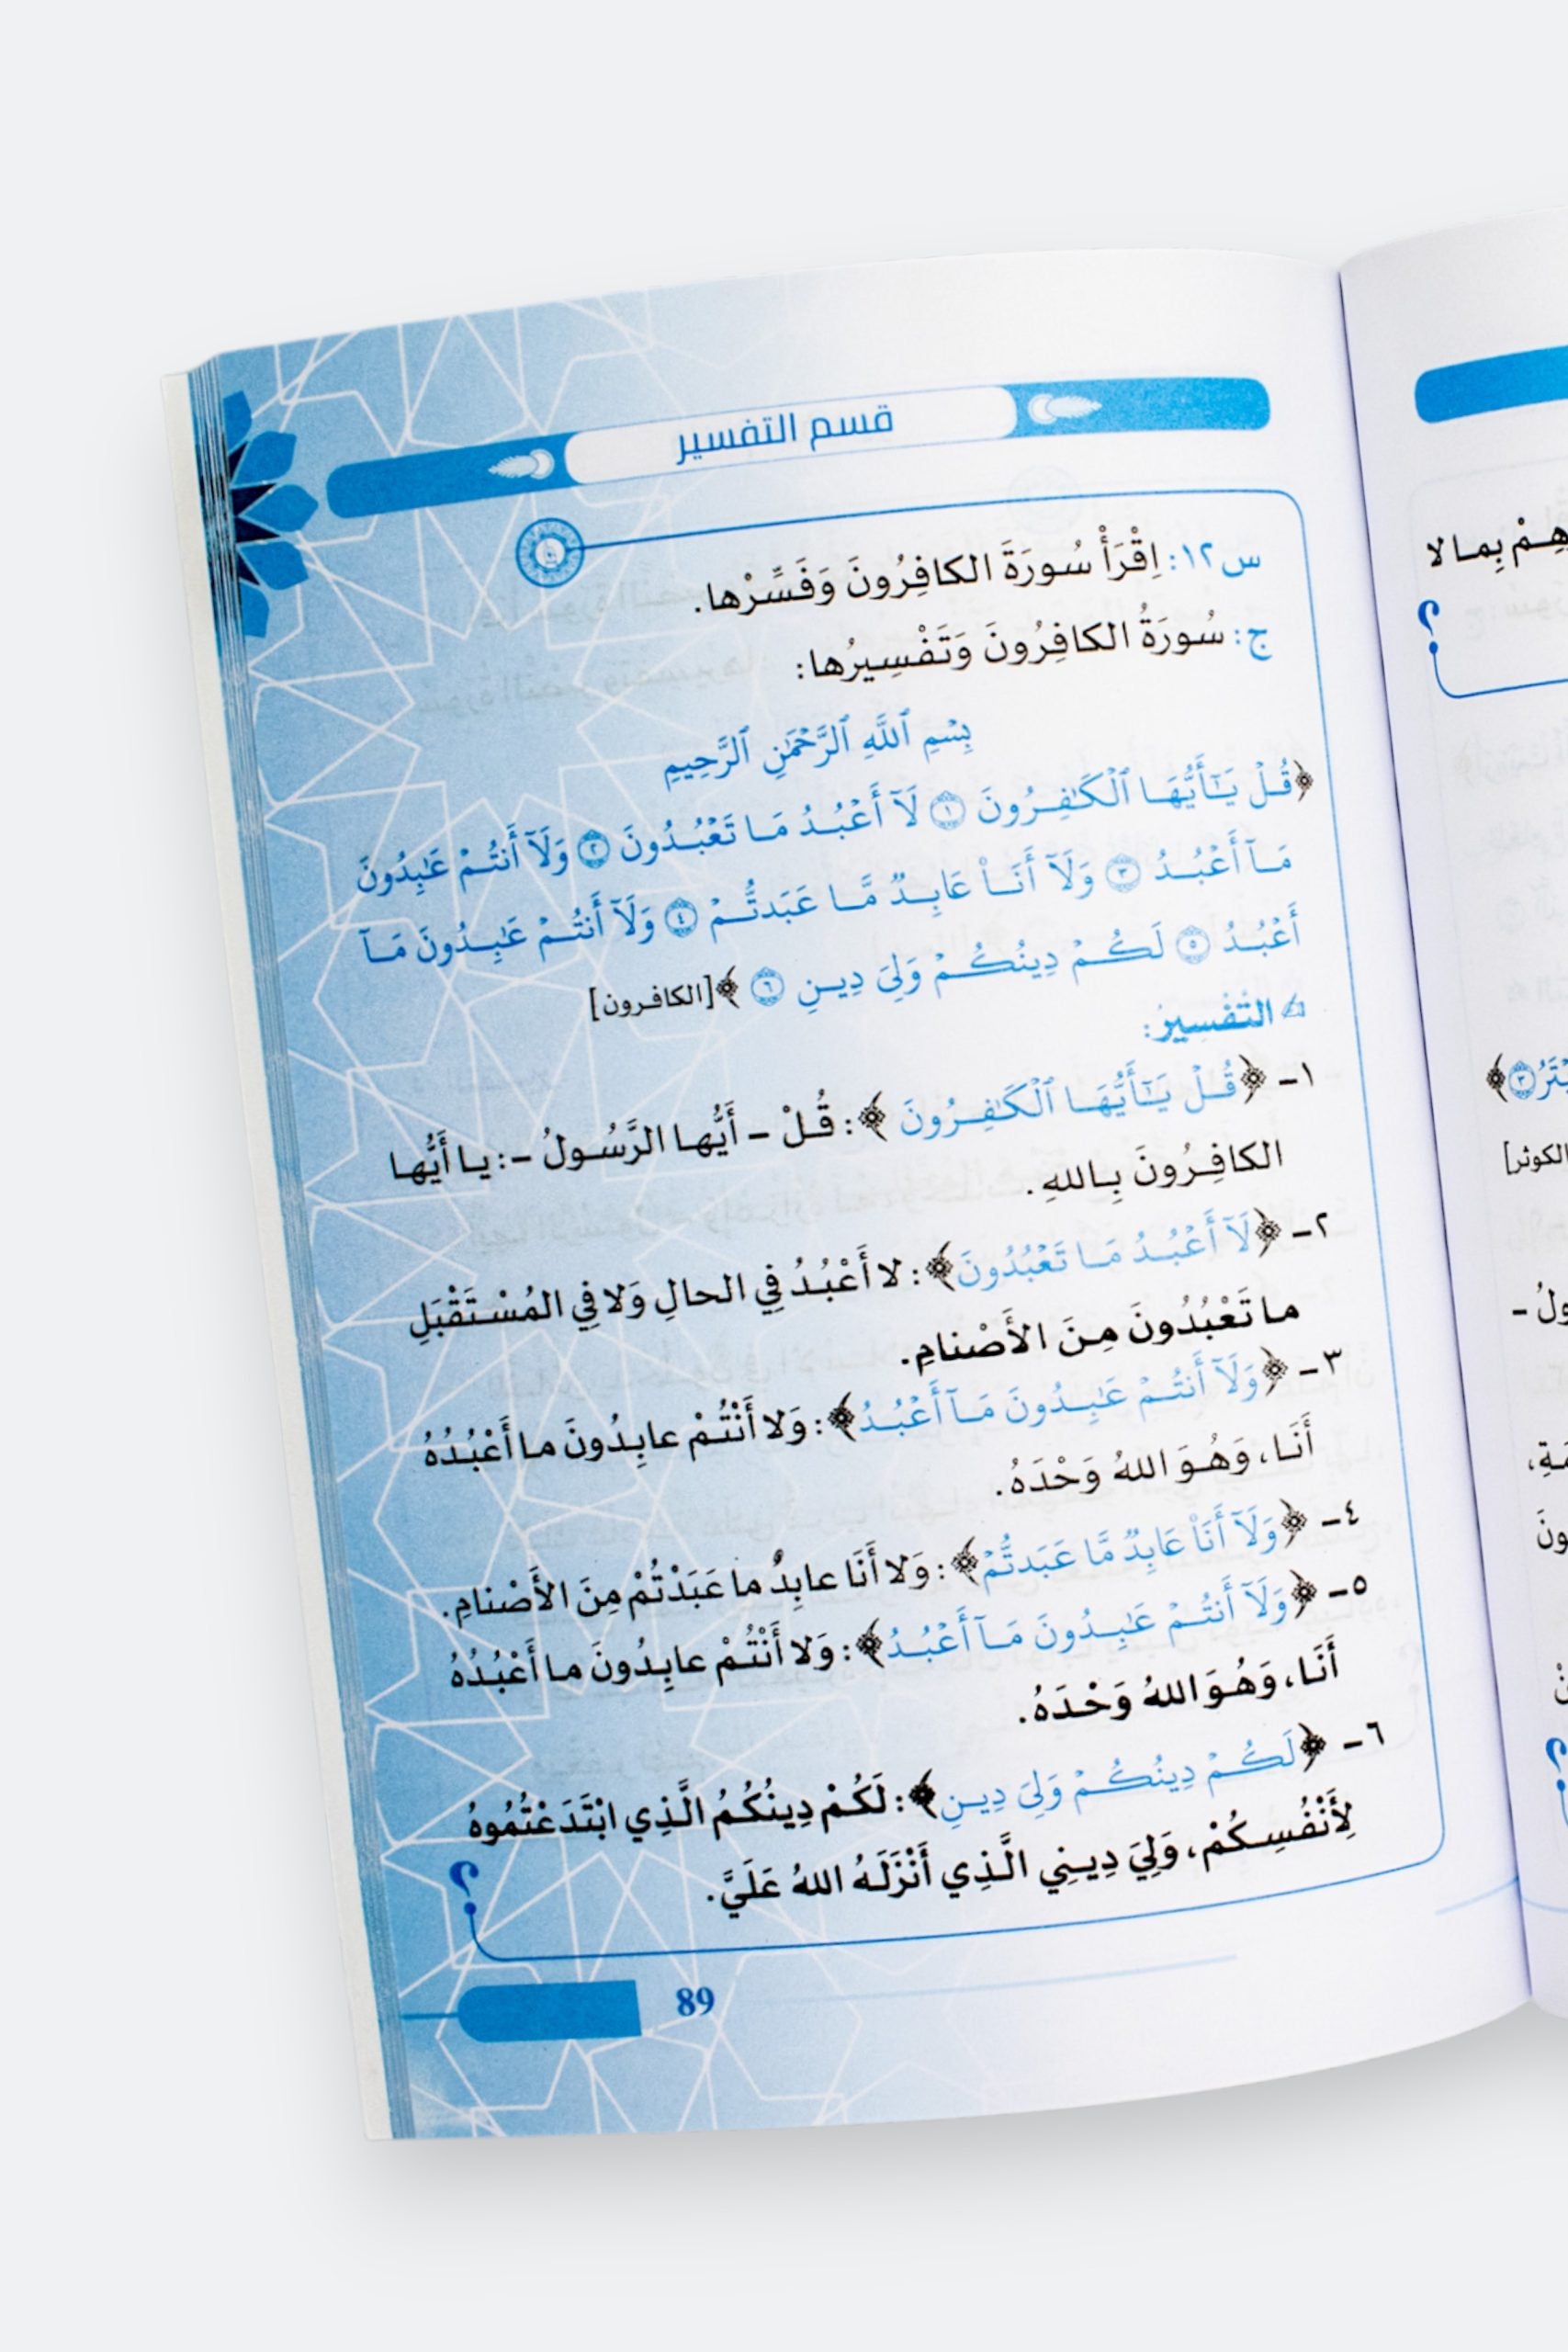 قسم التفسير
س١٢: اِقْرَأْ سُورَةَ الكافِرُونَ وَفَسِّرْها.
ج: سُورَةُ الكافِرُونَ وَتَفْسِيرُها:
بِسْمِ ٱللَّهِ ٱلرَّحْمَٰنِ ٱلرَّحِيمِ
﴿قُلْ يَٰٓأَيُّهَا ٱلْكَٰفِرُونَ ١ لَآ أَعْبُدُ مَا تَعْبُدُونَ ٢ وَلَآ أَنتُمْ عَٰبِدُونَ
مَآ أَعْبُدُ ٣ وَلَآ أَنَا۠ عَابِدٌ مَّا عَبَدتُّمْ ٤ وَلَآ أَنتُمْ عَٰبِدُونَ مَآ
أَعْبُدُ ٥ لَكُمْ دِينُكُمْ وَلِيَ دِينِ ٦﴾ [الكافرون]
التَّفْسِيرُ:
١- ﴿قُلْ يَٰٓأَيُّهَا ٱلْكَٰفِرُونَ﴾: قُلْ - أَيُّها الرَّسُولُ -: يا أَيُّها
الكافِرُونَ بِاللهِ.
٢- ﴿لَآ أَعْبُدُ مَا تَعْبُدُونَ﴾: لا أَعْبُدُ فِي الحالِ وَلا فِي المُسْتَقْبَلِ
ما تَعْبُدُونَ مِنَ الأَصْنامِ.
٣- ﴿وَلَآ أَنتُمْ عَٰبِدُونَ مَآ أَعْبُدُ﴾: وَلا أَنْتُمْ عابِدُونَ ما أَعْبُدُهُ
أَنَا، وَهُوَ اللهُ وَحْدَهُ.
٤- ﴿وَلَآ أَنَا۠ عَابِدٌ مَّا عَبَدتُّمْ﴾: وَلا أَنَا عابِدٌ ما عَبَدْتُمْ مِنَ الأَصْنامِ.
٥- ﴿وَلَآ أَنتُمْ عَٰبِدُونَ مَآ أَعْبُدُ﴾: وَلا أَنْتُمْ عابِدُونَ ما أَعْبُدُهُ
أَنَا، وَهُوَ اللهُ وَحْدَهُ.
٦- ﴿لَكُمْ دِينُكُمْ وَلِيَ دِينِ﴾: لَكُمْ دِينُكُمُ الَّذِي ابْتَدَعْتُمُوهُ
لِأَنْفُسِكُمْ، وَلِيَ دِينِي الَّذِي أَنْزَلَهُ اللهُ عَلَيَّ.
؟
89
بِما لا
؟
٣﴾
الكوثر]